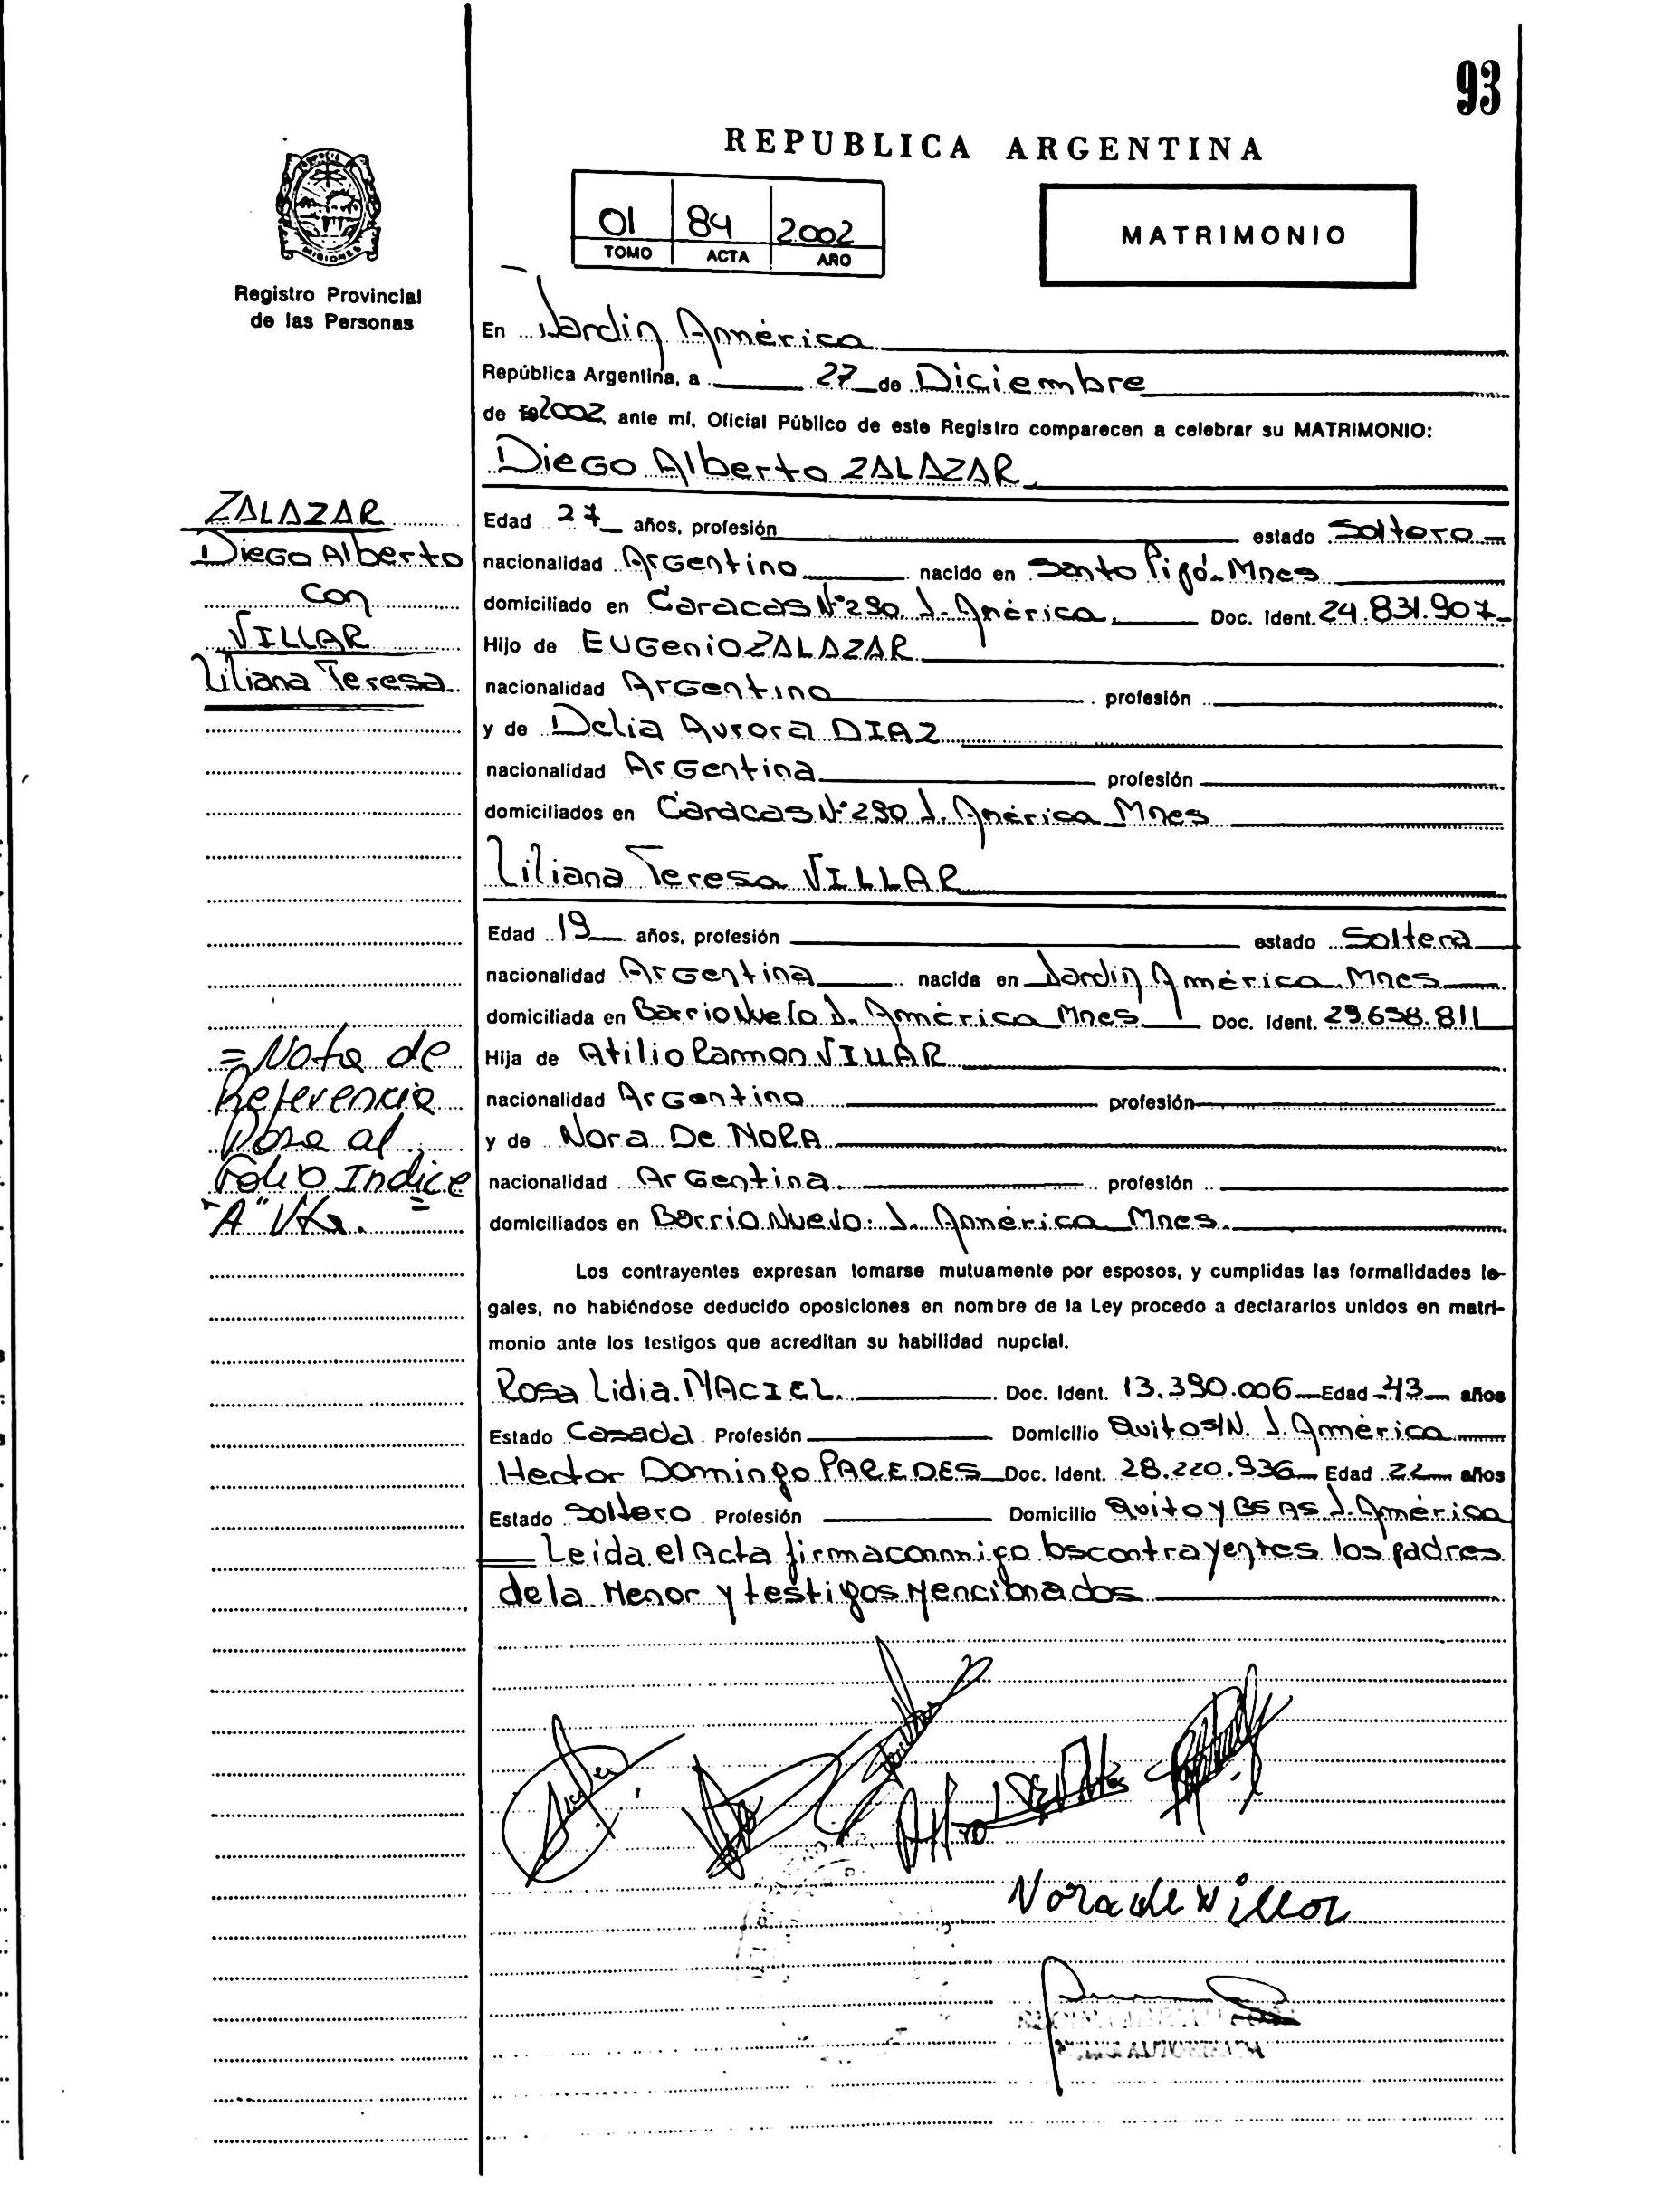 93
REPUBLICA ARGENTINA
01 84 2002
TOMO ACTA AÑO
MATRIMONIO
MISIONES
Registro Provincial
de las Personas
En Jardin América
República Argentina, a 27 de Diciembre
de 2002, ante mí, Oficial Público de este Registro comparecen a celebrar su MATRIMONIO:
Diego Alberto ZALAZAR
Edad 27 años, profesión estado Soltero
nacionalidad Argentino nacido en Santo Pipó-Mnes
domiciliado en Caracas N°290 J. América. Doc. Ident. 24.831.907
Hijo de EUGenio ZALAZAR
nacionalidad Argentino profesión
y de Delia Aurora DIAZ
nacionalidad Argentina profesión
domiciliados en Caracas N°290 J. América Mnes
Liliana Teresa VILLAR
Edad 19 años, profesión estado Soltera
nacionalidad Argentina nacida en Jardin América Mnes
domiciliada en Barrio Nuevo J. América Mnes Doc. Ident. 29.658.811
Hija de Atilio Ramon VILLAR
nacionalidad Argentino profesión
y de Nora De MORA
nacionalidad Argentina profesión
domiciliados en Barrio Nuevo J. América Mnes.
Los contrayentes expresan tomarse mutuamente por esposos, y cumplidas las formalidades le-
gales, no habiéndose deducido oposiciones en nombre de la Ley procedo a declararlos unidos en matri-
monio ante los testigos que acreditan su habilidad nupcial.
Rosa Lidia MACIEL. Doc. Ident. 13.390.006 Edad 43 años
Estado Casada Profesión Domicilio Quito S/N. J. América
Hector Domingo PAREDES Doc. Ident. 28.220.936 Edad 22 años
Estado Soltero Profesión Domicilio Quito y BS AS J. América
Leida el Acta firma conmigo los contrayentes los padres
de la Menor y testigos Mencionados
Nora de Villar
ZALAZAR
Diego Alberto
con
VILLAR
Liliana Teresa
=Nota de
Referencia
Pasa al
Folio Indice
"A" Vta. =